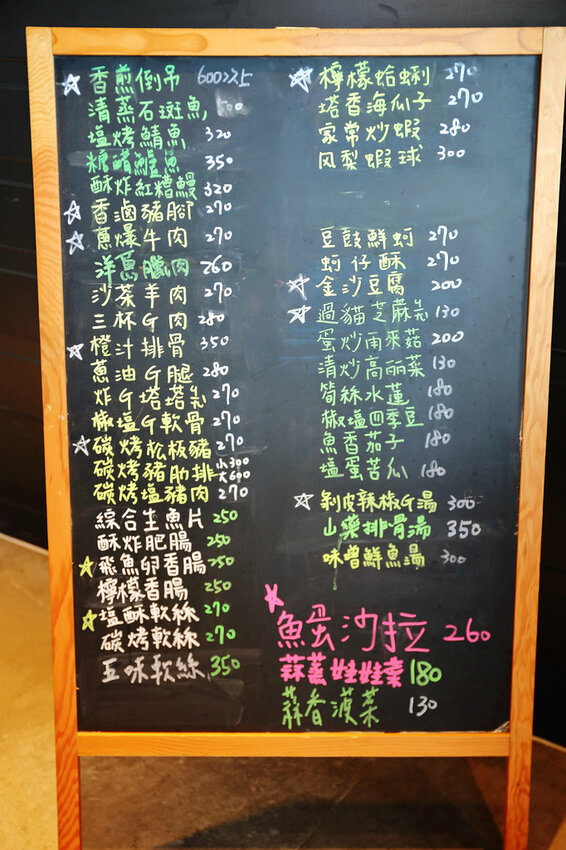 ☆香煎倒吊 600325
清蒸石斑魚 500
塩烤鯖魚 320
糖醋鱸魚 350
酥炸紅糟鰻 320
☆香滷豬腳 270
☆蔥爆牛肉 270
洋蔥臘肉 260
沙茶羊肉 270
三杯G肉 280
☆橙汁排骨 350
蔥油G腿 280
炸G塔塔醬 270
椒塩G軟骨 270
☆碳烤松板豬 270
碳烤豬肋排 小300 大600
碳烤塩豬肉 270
綜合生魚片 250
酥炸肥腸 250
☆飛魚卵香腸 250
檸檬香腸 250
☆塩酥軟絲 270
碳烤軟絲 270
五味軟絲 350
☆檸檬蛤蜊 270
塔香海瓜子 270
家常炒蝦 280
凤梨蝦球 300
豆豉鮮蚵 270
蚵仔酥 270
☆金沙豆腐 200
☆過貓芝蔴 130
蛋炒雨來菇 200
清炒高丽菜 130
筍絲水蓮 180
椒塩四季豆 180
魚香茄子 180
塩蛋苦瓜 180
☆剝皮辣椒G湯 300
山藥排骨湯 350
味噌鮮魚湯 300
☆鱼蛋沙拉 260
蒜蒸娃娃菜 180
蒜香菠菜 130